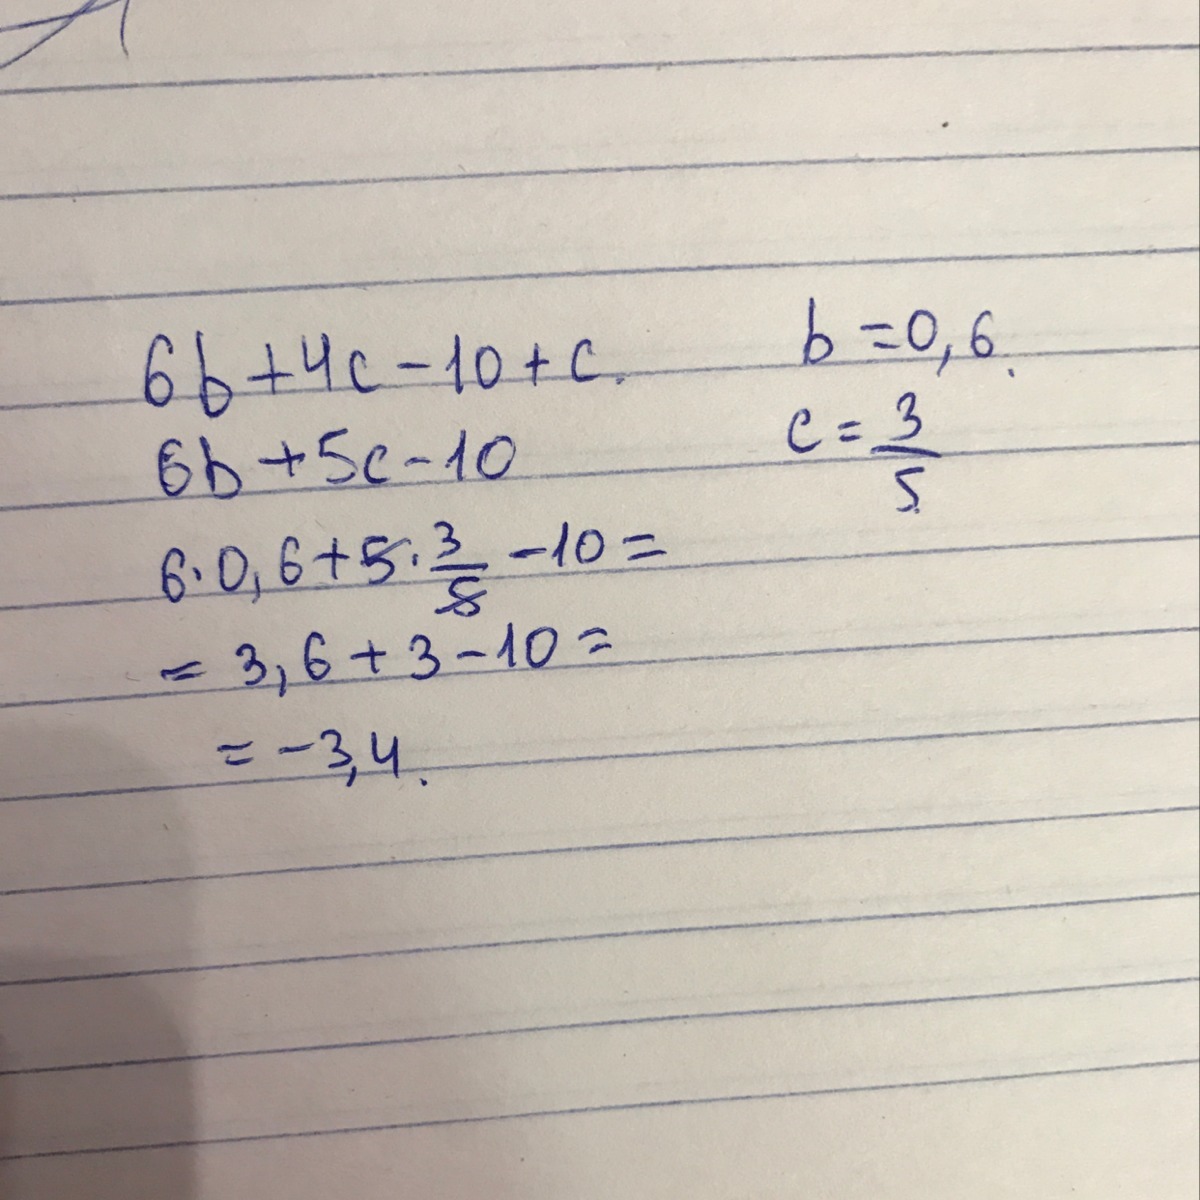 6b+4c-10+c.
b=0,6.
6b+5c-10
c=3/5.
6·0,6+5·3/5-10=
=3,6+3-10=
=-3,4.